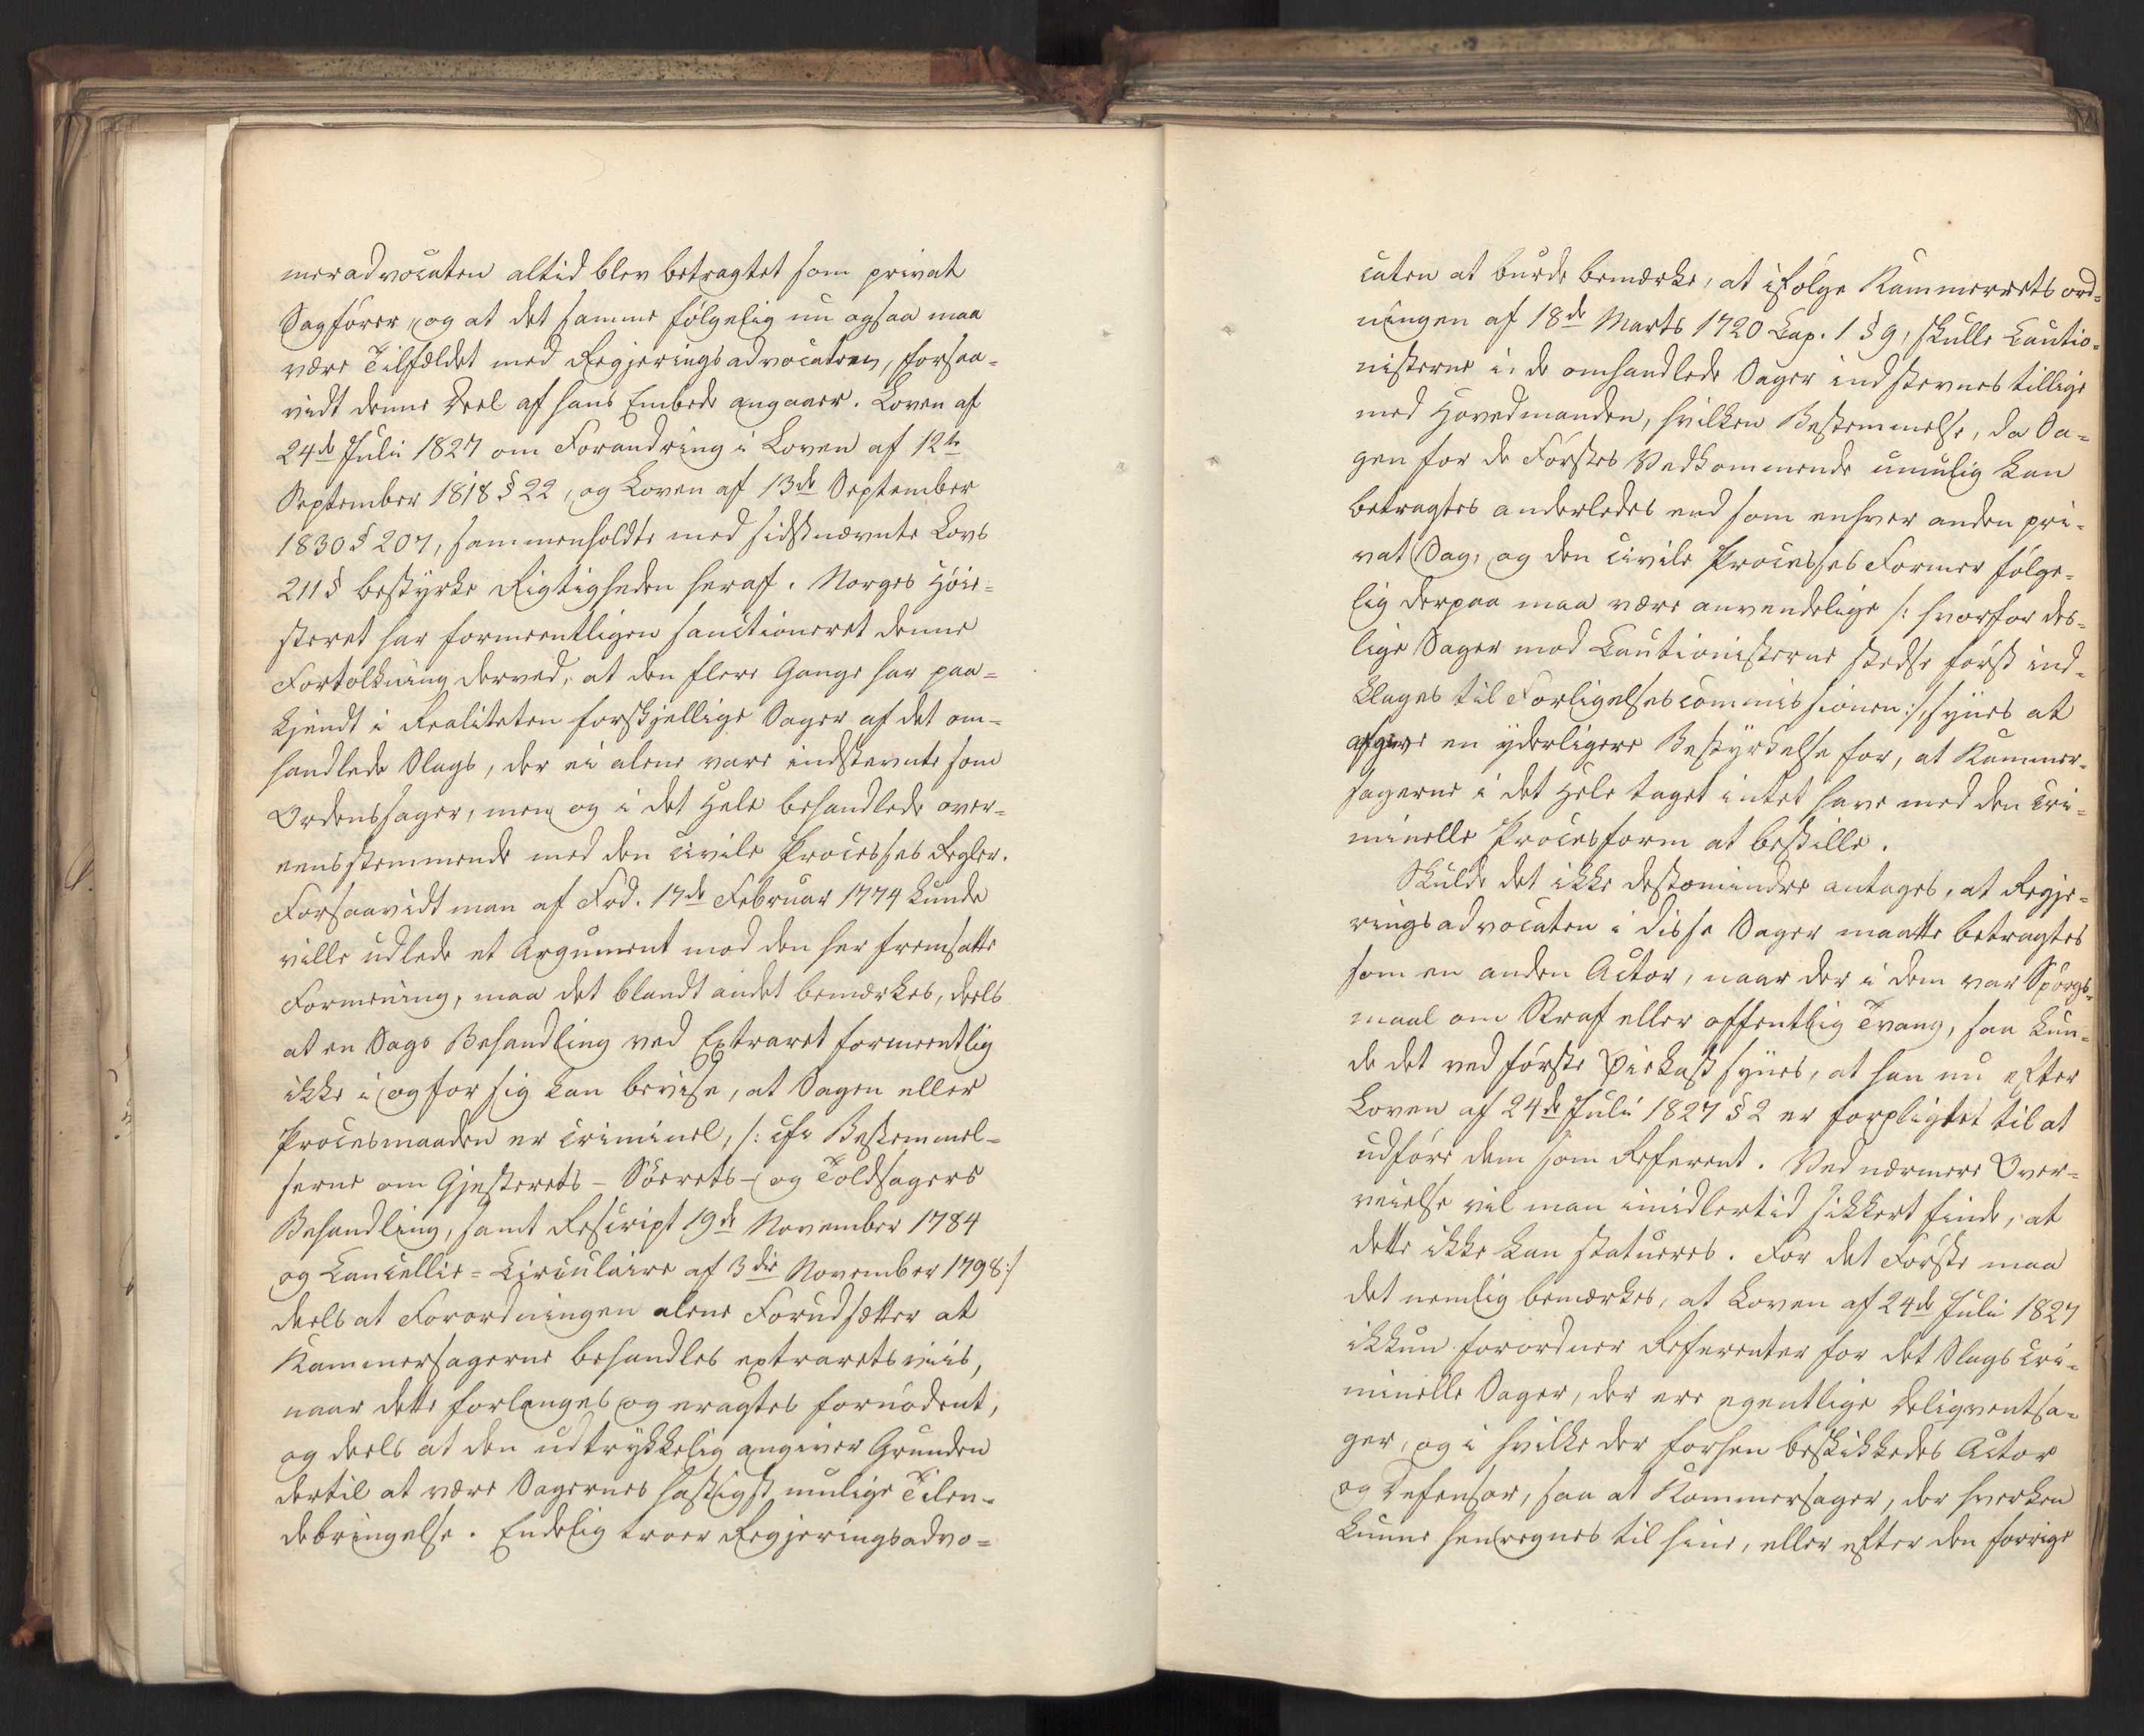 meradvocaten altid blev betragtet som privat
Sagfører, og at det samme følgelig nu ogsaa maa
være Tilfældet med Regjeringsadvocaten, forsaa-
vidt denne Deel af hans Embede angaaer. Loven af
24de Juli 1827 om Forandring i Loven af 12te
September 1818 § 22, og Loven af 13de September
1830 § 207, sammenholdte med sidstnævnte Lovs
211 § bestyrke Rigtigheden heraf. Norges Høie-
steret har formeentligen sanctioneret denne
Fortolkning derved, at den flere Gange har paa-
kjendt i Realiteten forskjellige Sager af det om-
handlede Slags, der ei alene vare indstevnte som
Ordenssager, men og i det Hele behandlede over-
eensstemmende med den civile Processes Regler.
Forsaavidt man af Frd. 17de Februar 1774 kunde
ville udlede et Argument mod den her fremsatte
Formening, maa det blandt andet bemærkes, deels
at en Sags Behandling ved Extraret formeentlig
ikke i og for sig kan bevise, at Sagen eller
Procesmaaden er criminel, /: cfr Bestemmel-
serne om Gjesterets- Søerets- og Toldsagers
Behandling, samt Rescript 19de November 1784
og Cancellie-Circulaire af 3die November 1798:/
deels at Forordningen alene Forudsætter at
Kammersagerne behandles extraretsviis,
naar dette forlanges og eragtes fornødent,
og deels at den udtrykkelig angiver Grunden
dertil at være Sagernes hastigst mulige Tilen-
debringelse. Endelig troer Regjeringsadvo-
caten at burde bemærke, at ifølge Kammerretsord-
ningen af 18de Marts 1720 Cap. 1 § 9, skulle Cautio-
nisterne i de omhandlede Sager indstevnes tillige
med Hovedmanden, hvilken Bestemmelse, da Sa-
gen for de Førstes Vedkommende umulig kan
betragtes anderledes end som enhver anden pri-
vat Sag, og den civile Processes Former følge-
lig derpaa maa være anvendelige /: hvorfor des-
lige Sager mod Cautionisterne stedse først ind-
klages til Forligelsescommissionen :/, synes at
afgive en yderligere Bestyrkelse for, at Kammer-
sagerne i det Hele taget intet have med den cri-
minelle Procesform at bestille.
Skulde det ikke destomindre antages, at Regje-
ringsadvocaten i disse Sager maatte betragtes
som en anden Actor, naar der i dem var Spørgs-
maal om Straf eller offentlig Tvang, saa kun-
de det ved første Øiekast synes, at han nu efter
Loven af 24de Juli 1827 § 2 er forpligtet til at
udføre dem som Referent. Ved nærmere Over-
veielse vil man imidlertid sikkert finde, at
dette ikke kan statueres. For det Første maa
det nemlig bemærkes, at Loven af 24de Juli 1827
ikkun forordner Referenter for det Slags cri-
minelle Sager, der ere egentlige Deliqventsa-
ger, og i hvilke der forhen beskikkedes Actor
og Defensor, saa at Kammersager, der hverken
kunne henregnes til hine, eller efter den forrige